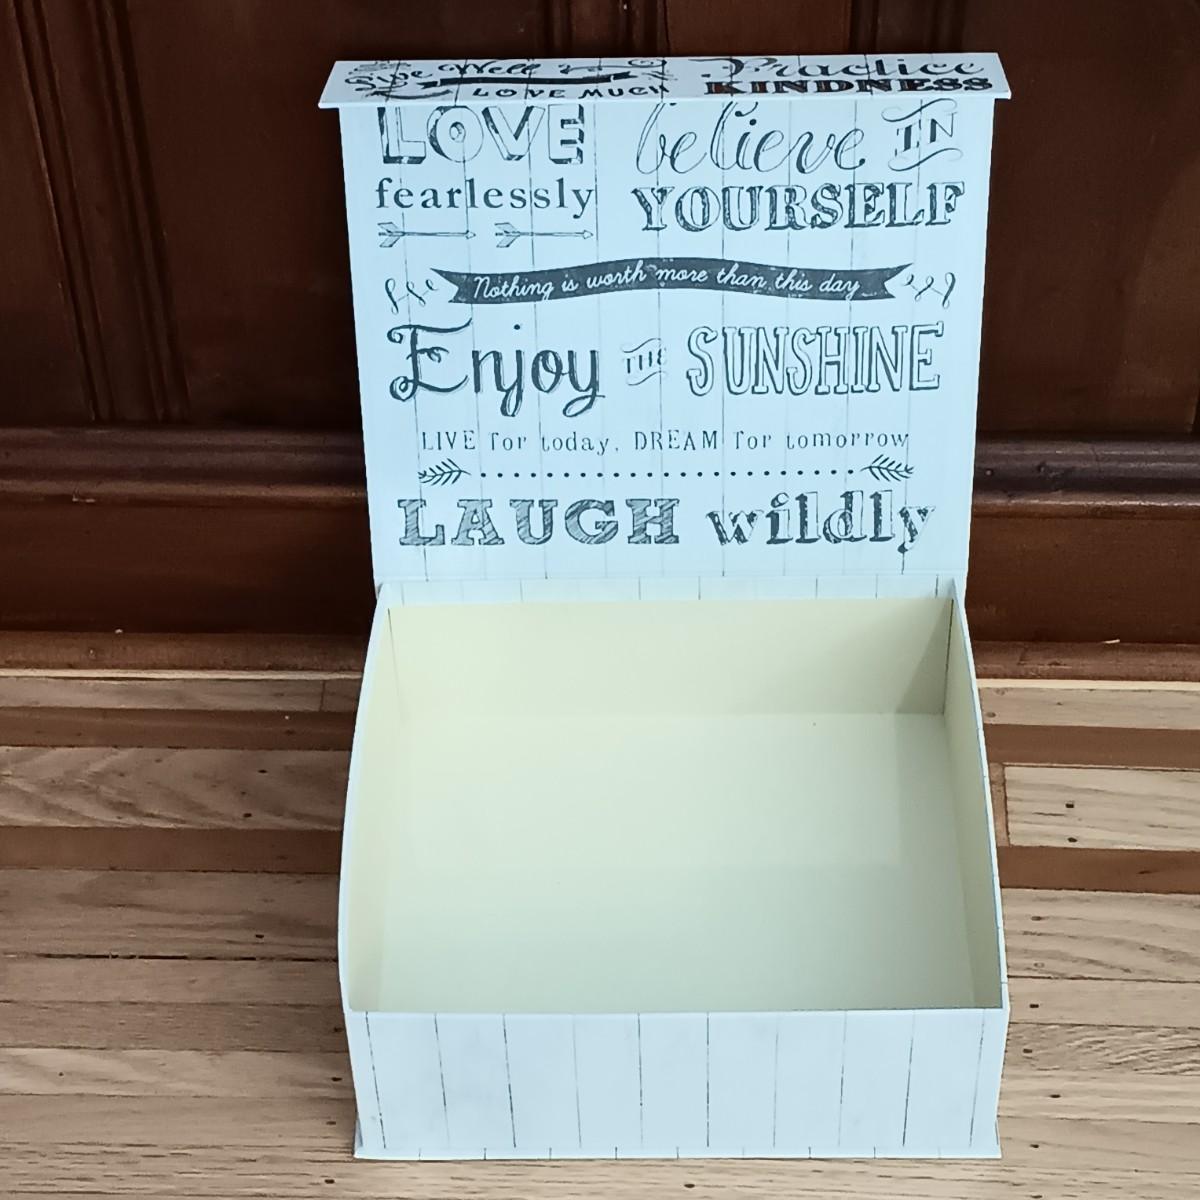 Live Well
LOVE MUCH
Practice
KINDNESS
LOVE
fearlessly
believe IN
YOURSELF
Nothing is worth more than this day
Enjoy THE SUNSHINE
LIVE for today, DREAM for tomorrow
LAUGH wildly